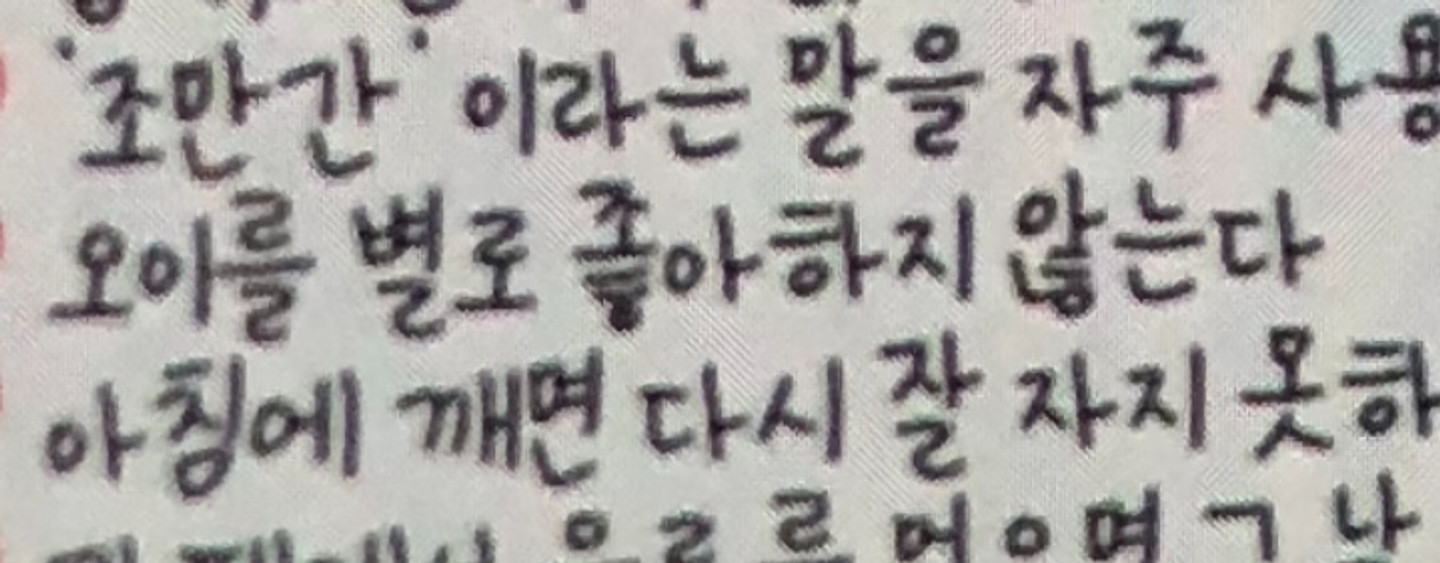 '조만간' 이라는 말을 자주 사용
오이를 별로 좋아하지 않는다
아침에 깨면 다시 잘 자지 못하